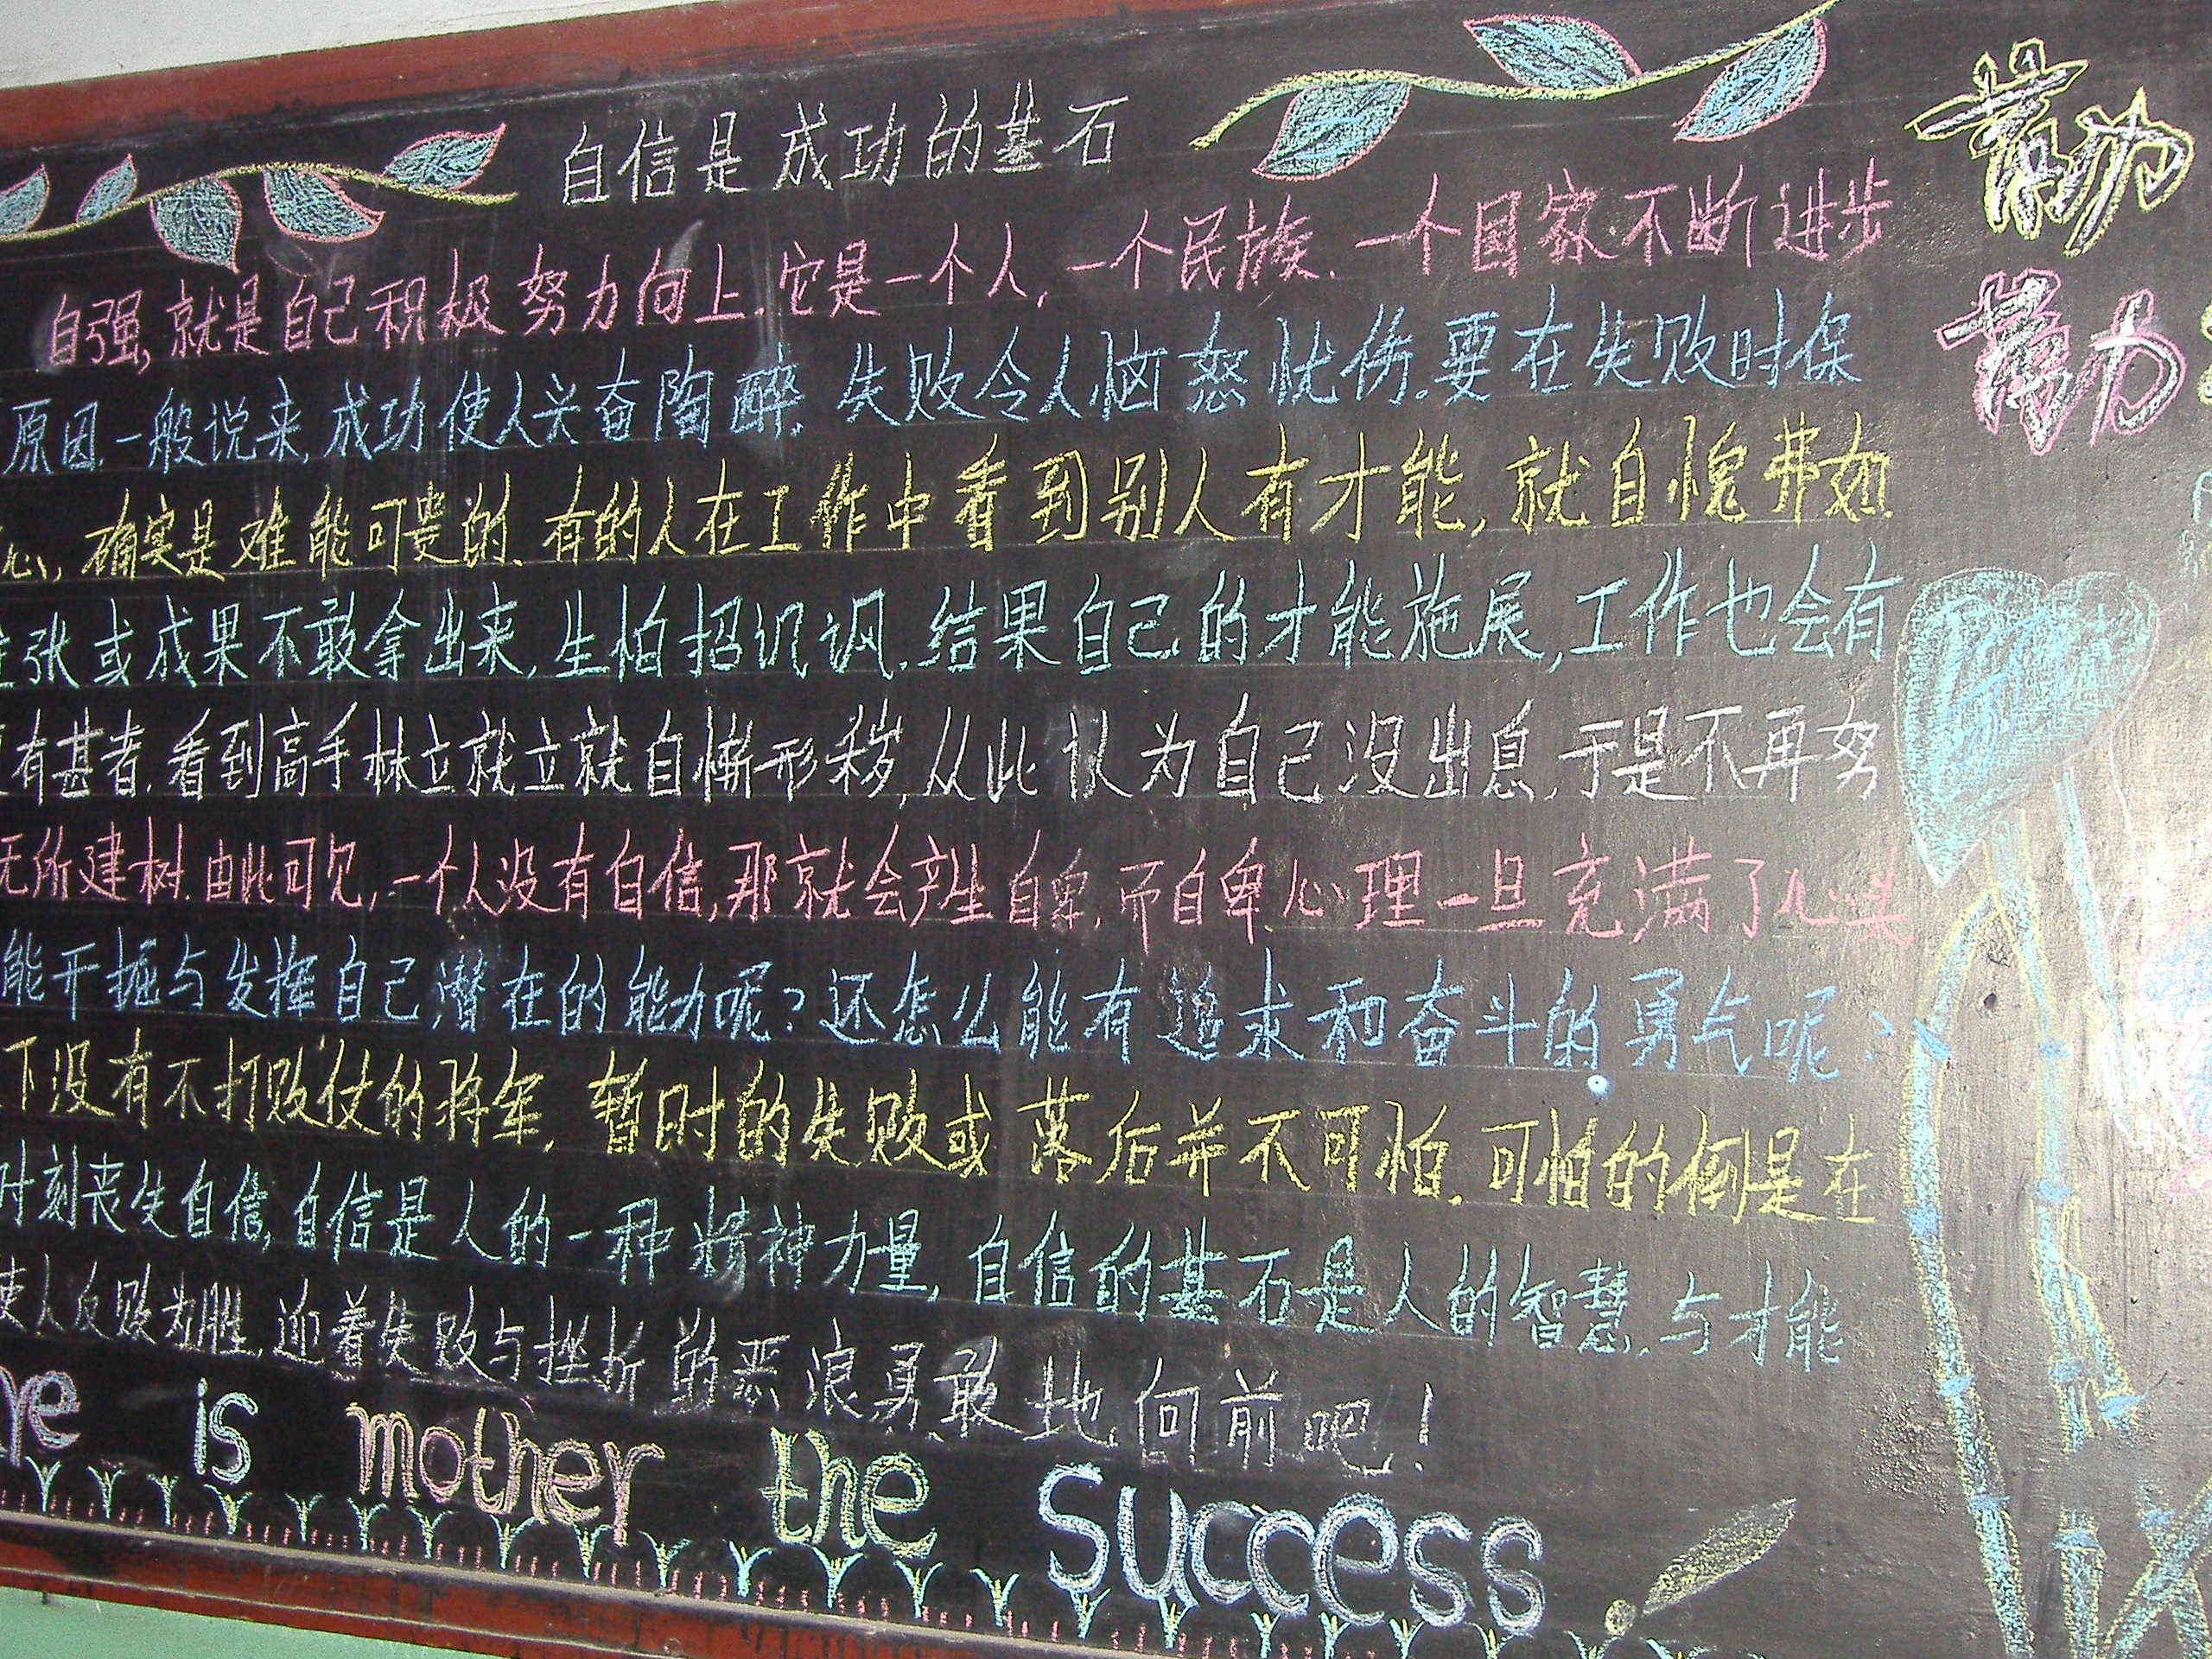 自信是成功的基石
自强,就是自己积极努力向上.它是一个人,一个民族.一个国家不断进步
原因.一般说来,成功使人兴奋陶醉.失败令人恼怒忧伤.要在失败时保
心,确实是难能可贵的.有的人在工作中看到别人有才能,就自愧弗如.
主张或成果不敢拿出来,生怕招识讽.结果自己的才能施展,工作也会有
有甚者.看到高手林立就立就自惭形秽,从此认为自己没出息,于是不再努
无所建树.由此可见,一个人没有自信,那就会产生自卑.而自卑心理一旦充满了心
能干掘与发挥自己潜在的能力呢?还怎么能有追求和奋斗的勇气呢?
下没有不打败仗的将军.暂时的失败或落后并不可怕.可怕的倒是在
时刻丧失自信,自信是人的一种精神力量,自信的基石是人的智慧,与才能
使人反败为胜.迎着失败与挫折的恶浪勇敢地向前吧!
is mother the Success